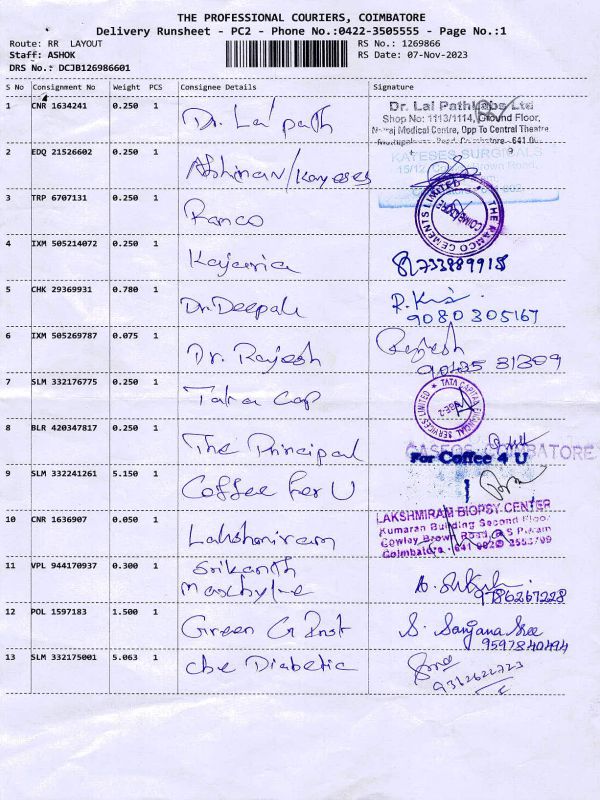 THE PROFESSIONAL COURIERS, COIMBATORE
Delivery Runsheet - PC2 - Phone No.:0422-3505555 - Page No.:1
Route: RR LAYOUT RS No.: 1269866
Staff: ASHOK RS Date: 07-Nov-2023
DRS No.: DCJB126986601
S No Consignment No Weight PCS Consignee Details Signature
1 CNR 1634241 0.250 1 Dr. Lal path
Dr. Lal PathLabs Ltd
Shop No: 1113/1114, Ground Floor,
Medical Centre, Opp To Central Theatre
2 EDQ 21526602 0.250 1 Abhinav/Kayeses
KAYESES SURGICALS
3 TRP 6707131 0.250 1 Ramco
THE RAMCO CEMENTS LIMITED
COIMBATORE
4 IXM 505214072 0.250 1 Kajaria
5 CHK 29369931 0.780 1 Dr. Deepak
9080305167
6 IXM 505269787 0.075 1 Dr. Rajesh Rajesh
7 SLM 332176775 0.250 1 Tata Cap
TATA CAPITAL FINANCIAL SERVICES LIMITED
8 BLR 420347817 0.250 1 The Principal
COIMBATORE
For Coffee 4 U
9 SLM 332241261 5.150 1 Coffee for U
10 CNR 1636907 0.050 1 Lakshmiram
LAKSHMIRAM BIOPSY CENTER
Kumaran Building Second Floor
Cowley Brown Road, R S Puram
Coimbatore - 641 002
11 VPL 944170937 0.300 1 Srikanth
9786267228
12 POL 1597183 1.500 1 Green G Inst S. Sanjana Sree
9597840494
13 SLM 332175001 5.063 1 cbe Diabetic
9362622723